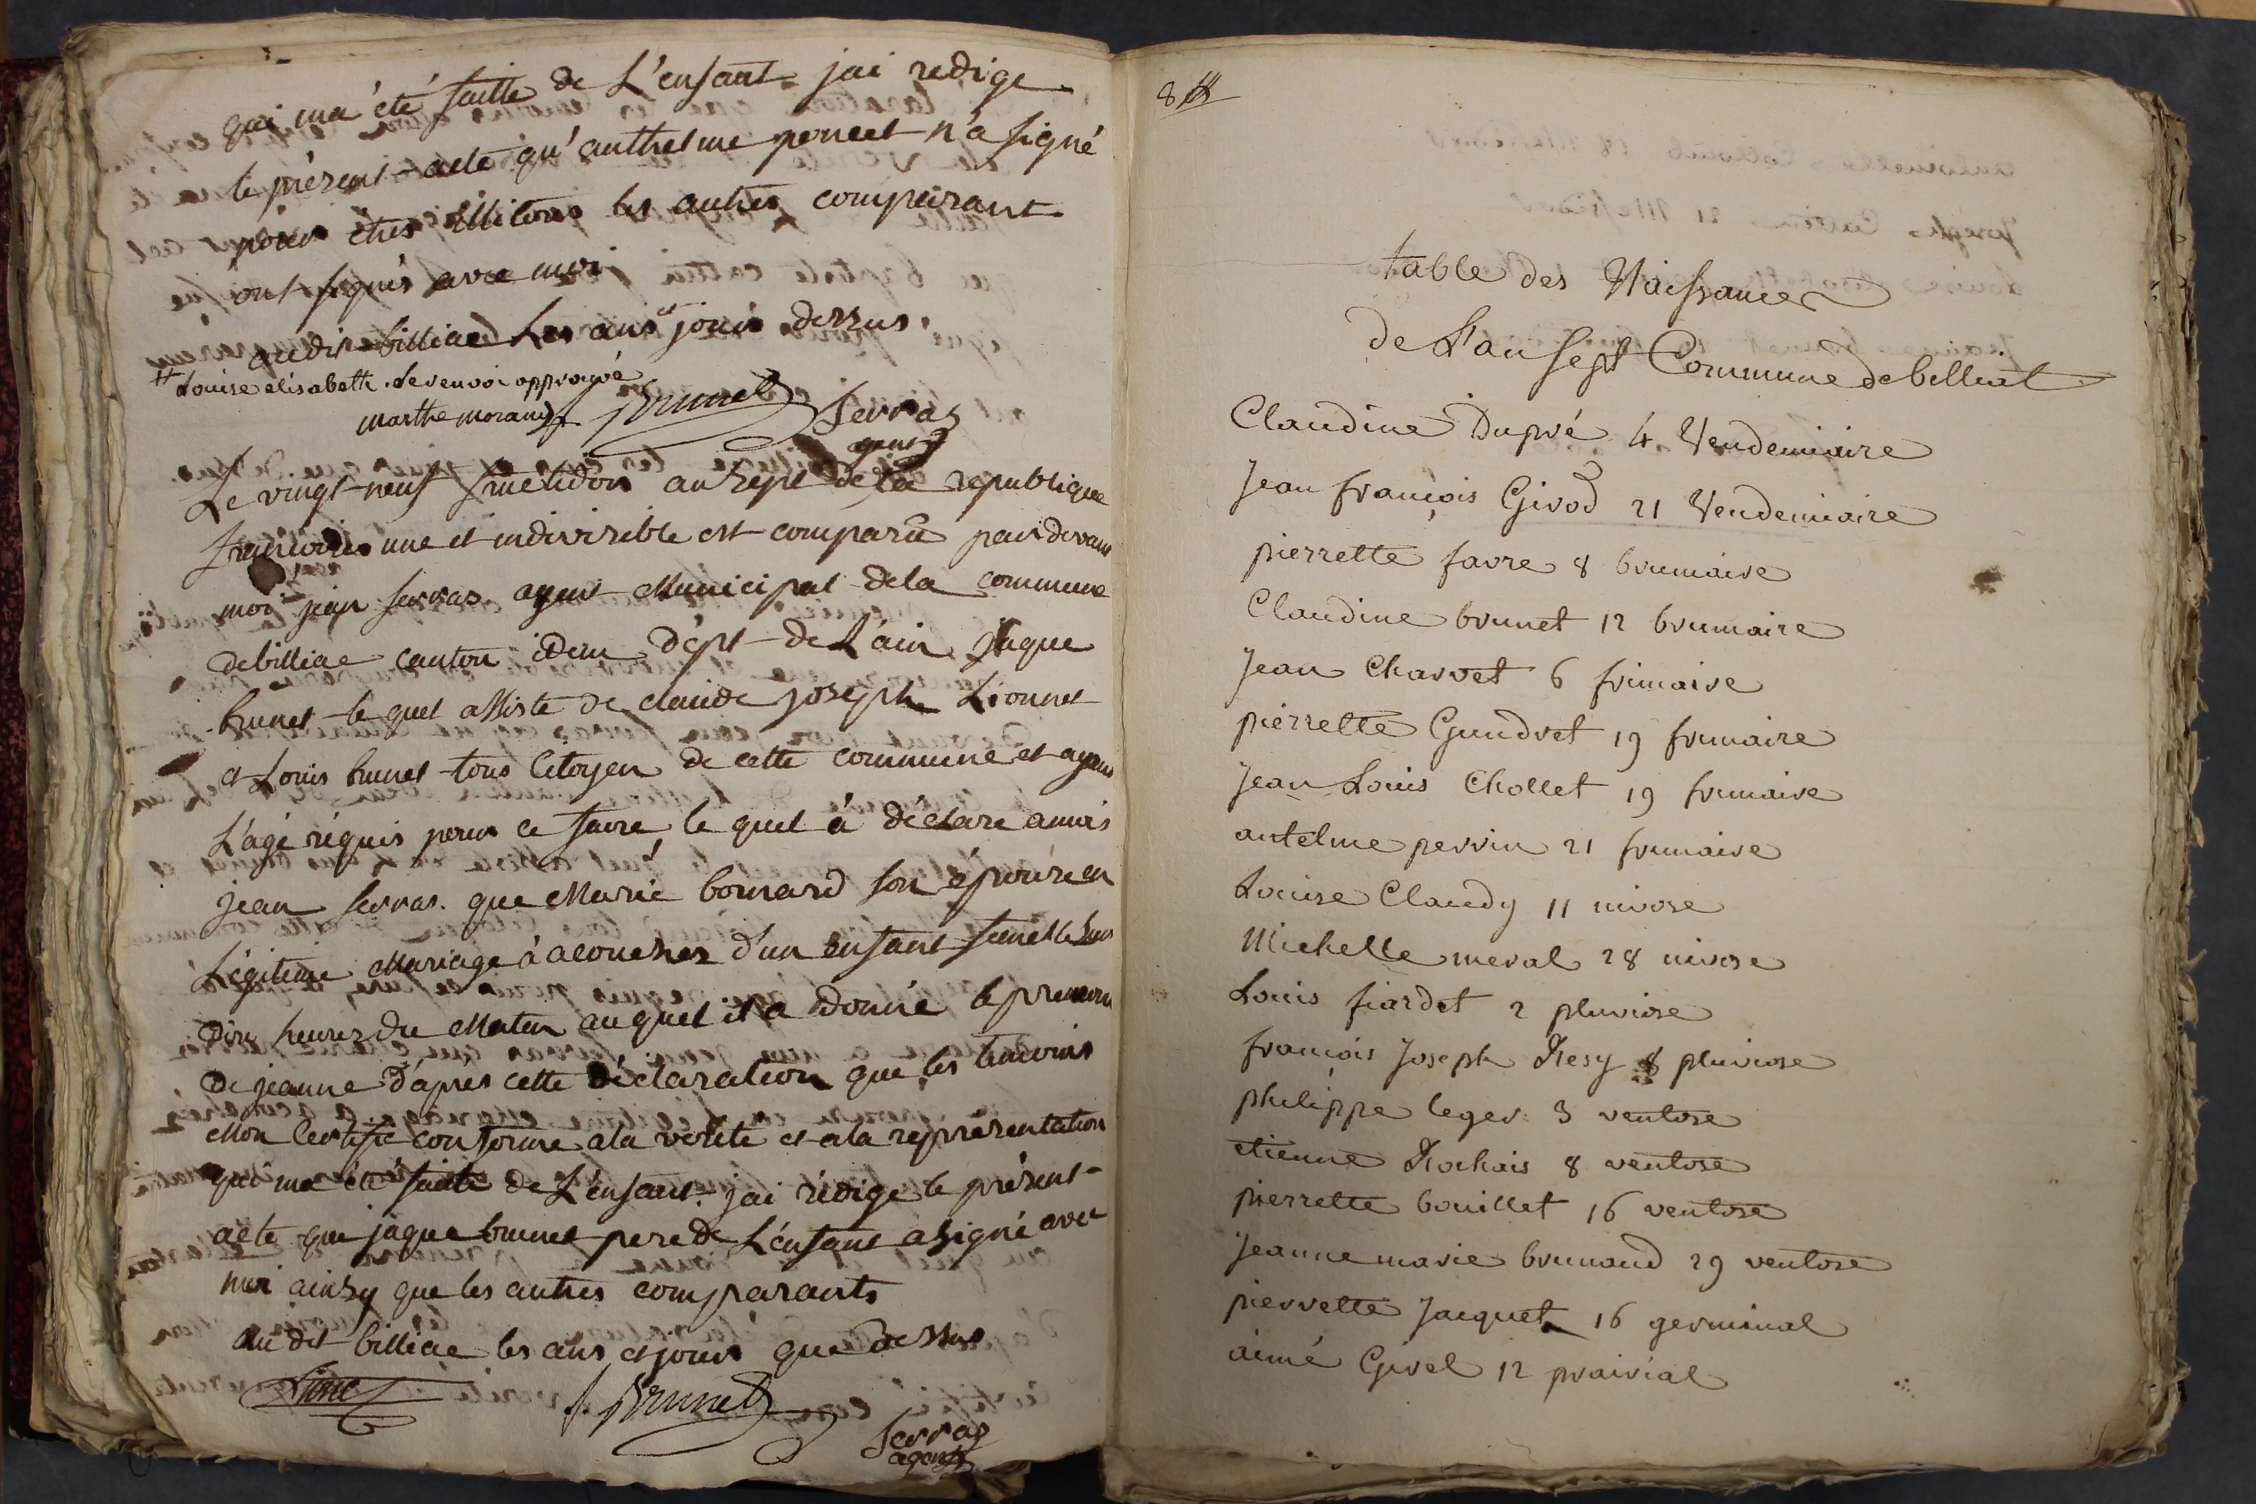 qui ma été faitte de L'enfant jai redige
le présent acte qu'anthelme poncet n'a signé
pour êtres illitoré les autres comparant
ont signés avec moi
audit billiac Les ans et jour dessus
++ Louise elisabeth. le renvoi approuvé
marthe morand J. Brunet Serras
agent
Le vingt neuf fructidor an sept de la republique
francoise une et indivisible est comparû par devant
moi jean serras agent Municipal de la commune
debilliac canton idem dépt de L'ain jaque
brunet le quel assiste de claude joseph Lionnet
et Louis brunet tous Citoyen de cette commune et ayant
L'age réquis pour ce faire, le quel à déclare a moi
jean serras. que Marie bornard son épouse en
Légitime Mariage à acoucher d'un enfant femelle
dix heures du Matin au quel il a donné le prenom
de jeanne d'après cette déclaration que les temoins
Mon Certifié conforme a la verité et a la représentation
qui ma été faite de L'enfant. jai rédige le présent
acte que jaque brunet pere de L'enfant a signé avec
moi ainsy que les autres comparants
au dit billiac les ans et jour que dessus
J. Brunet
Serras
agent
8
table des Naissance
De L'an sept Commune de belliat
Claudine Dupré 4 Vendemiaire
Jean françois Girod 21 Vendemiaire
pierrette favre 8 brumaire
Claudine brunet 12 brumaire
Jean Charvet 6 frimaire
pierrette Gundret 19 frimaire
Jean Louis Chollet 19 frimaire
antelme perrin 21 frimaire
Louise Claudy 11 nivose
Michelle meral 28 nivose
Louis fiardet 2 pluviose
françois Joseph Resy 8 pluviose
philippe leger 3 ventose
etienne Rochais 8 ventose
pierrette bouillet 16 ventose
Jeanne marie brunaud 29 ventose
pierrette Jacquet 16 germinal
aimé Girel 12 prairial